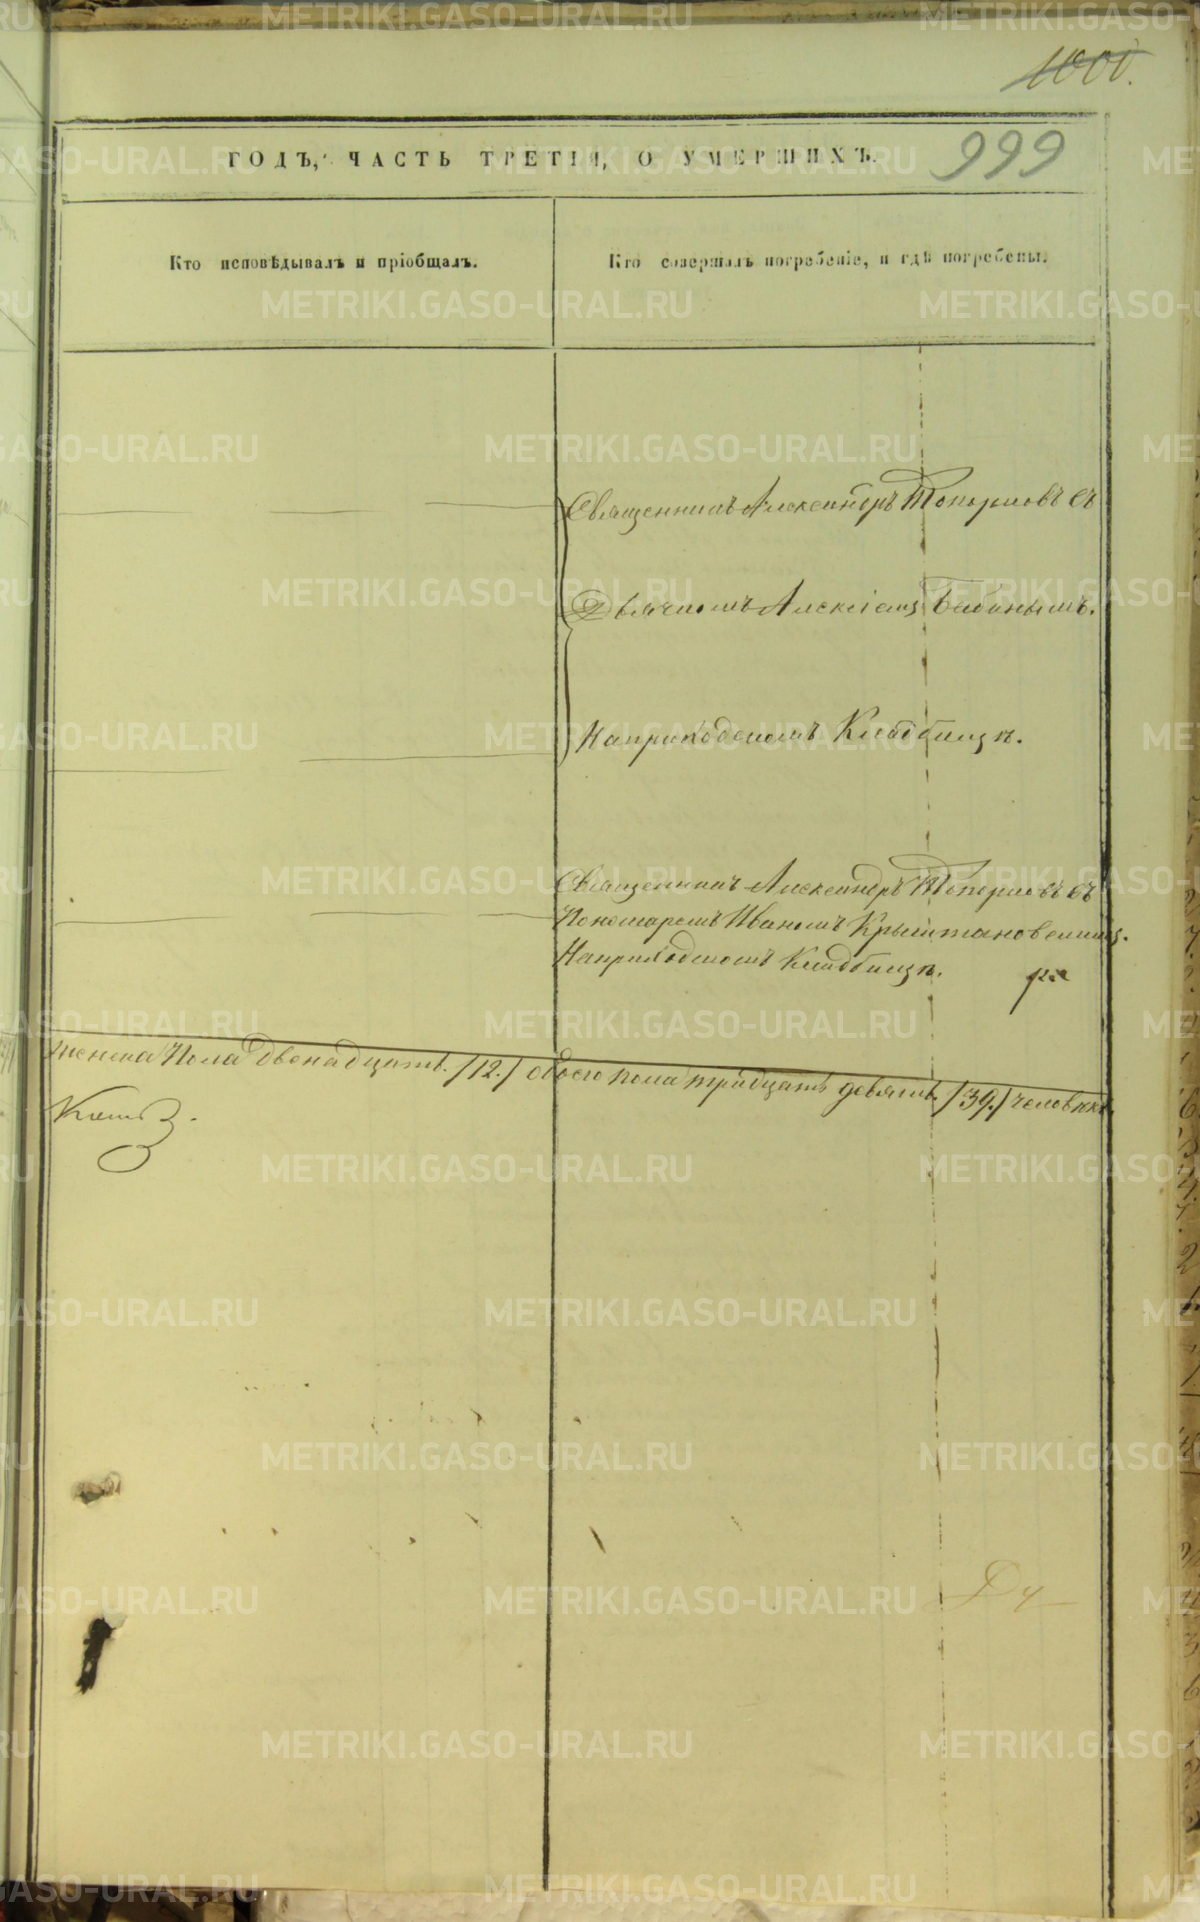 1000.
999
ГОДЪ, ЧАСТЬ ТРЕТІЯ, О УМЕРШИХЪ.
Кто исповѣдывалъ и пріобщалъ.
Кто совершалъ погребеніе, и гдѣ погребены.
Священникъ Александръ Топорковъ съ
Дьячкомъ Алексіемъ Бабинымъ.
На приходскомъ Кладбищѣ.
Священникъ Александръ Топорковъ съ
Пономаремъ Иваномъ Крыштановскимъ.
На приходскомъ Кладбищѣ.
женска пола двенадцать /12./ обоего пола тридцать девять /39./ человѣкъ.
METRIKI.GASO-URAL.RU